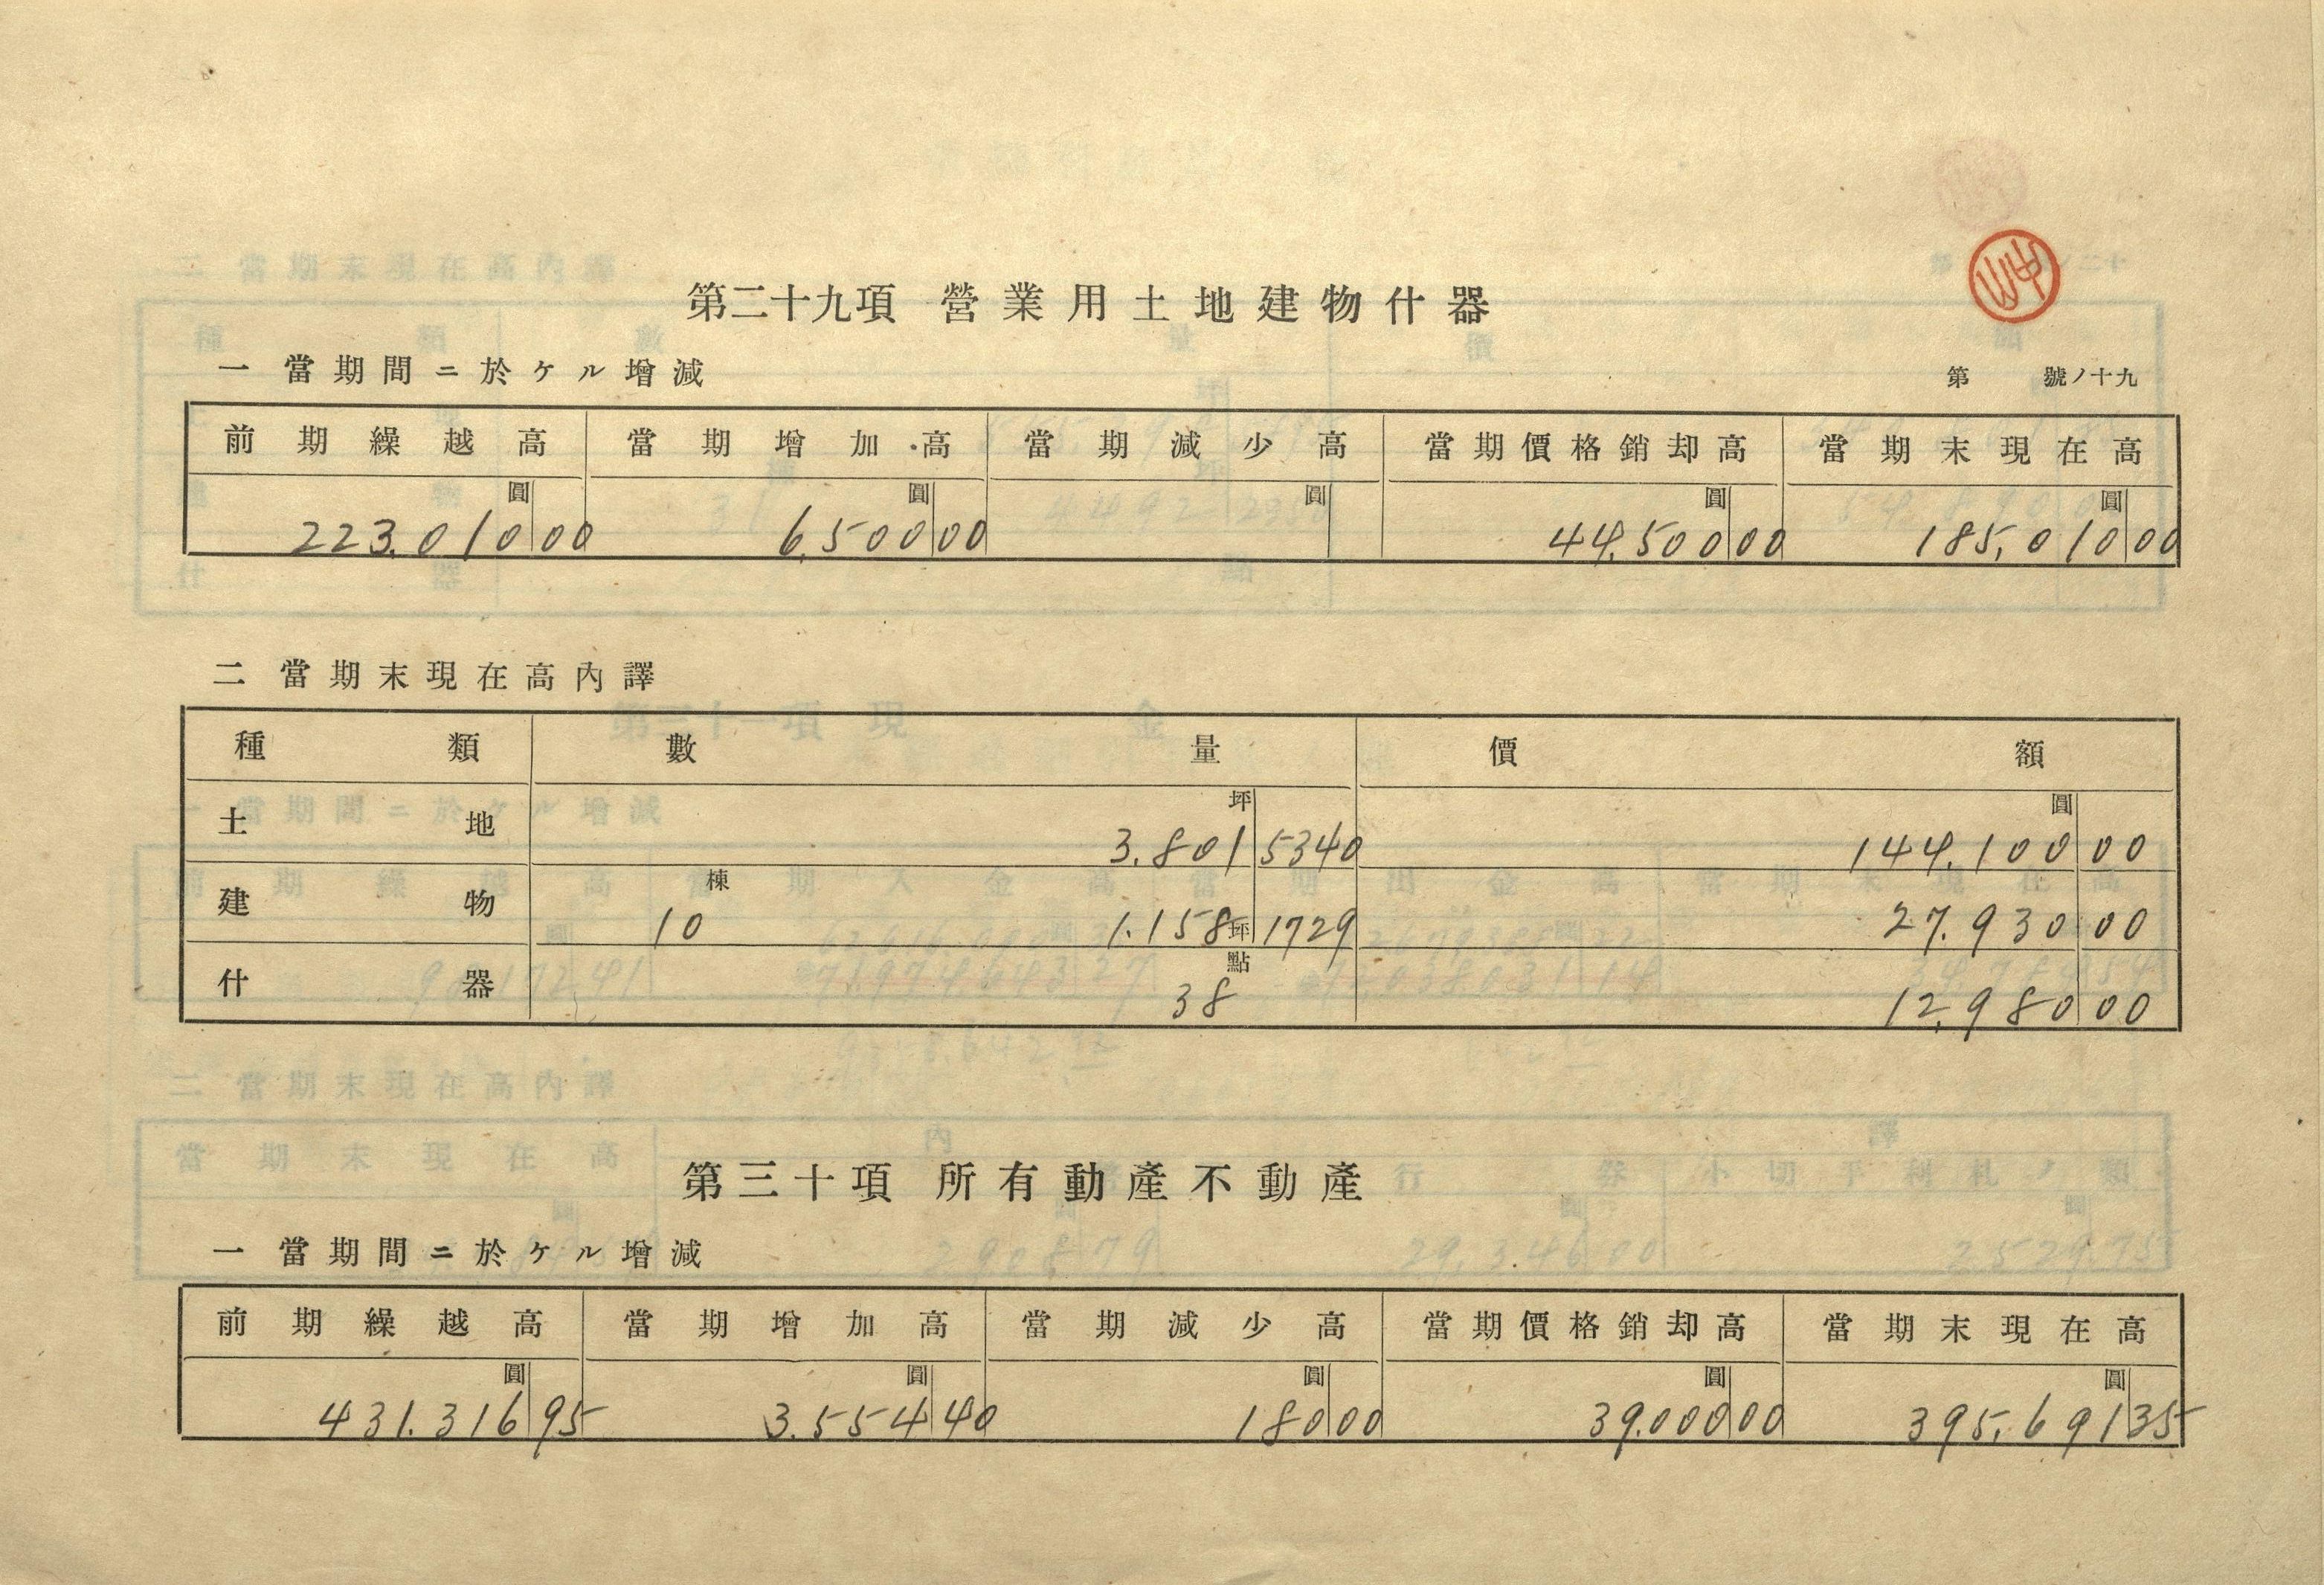 第二十九項 營業用土地建物什器
一 當期間ニ於ケル增減
第 號ノ十九
前期繰越高 當期增加高 當期減少高 當期價格銷却高 當期末現在高
圓 圓 圓 圓 圓
223.010 00 6.500 00 44.500 00 185.010 00
二 當期末現在高內譯
種類 數量 價額
坪 圓
土地 3.801 5340 144.100 00
棟
建物 10 1.158坪 1729 27.930 00
點
什器 38 12.980 00
第三十項 所有動產不動產
一 當期間ニ於ケル增減
前期繰越高 當期增加高 當期減少高 當期價格銷却高 當期末現在高
圓 圓 圓 圓 圓
431.316 95 3.554 40 180 00 39.000 00 395.691 35